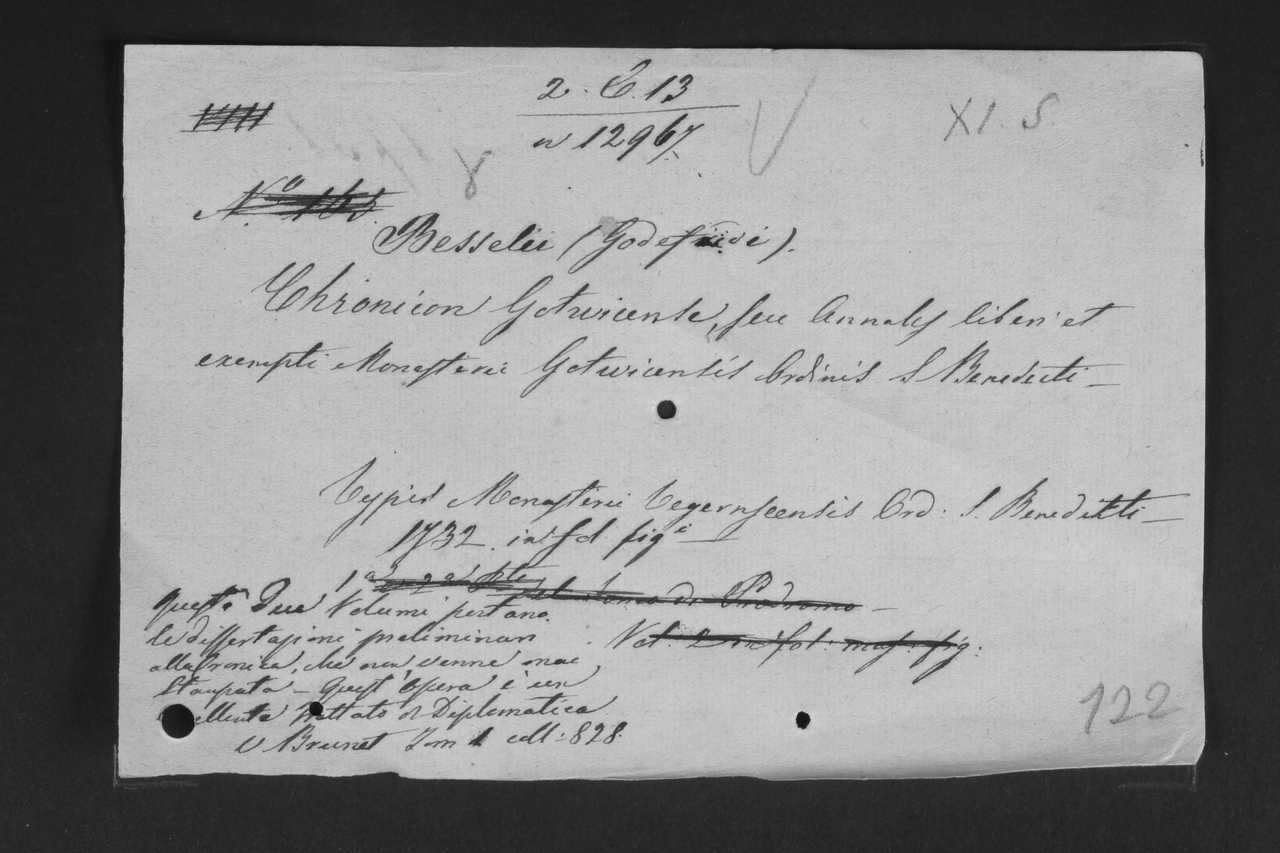 2. C. 13
n 12967
XI. S.
N.º 165.
Besselii (Godefridi).
Chronicon Gotwicense, seu Annales liberi et
exempti Monasterii Gotwicensis Ordinis S Benedicti —
Typis Monasterii Tegernseensis Ord. S. Benedicti —
1732. in fol fig.i —
Prodromo —
Vol. 2 in fol. mass. fig.
questi Due Volumi portano
le dissertazioni preliminari
alla Cronica, che non venne mai
Stampata — Quest'opera è un
eccellente trattato di Diplomatica
V Brunet Tom 1 coll: 828.
122